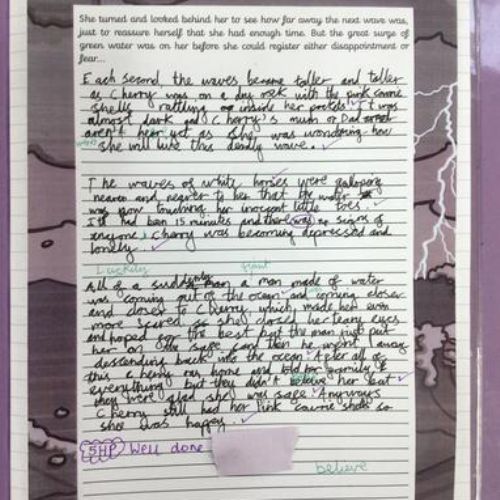 She turned and looked behind her to see how far away the next wave was,
just to reassure herself that she had enough time. But the great surge of
green water was on her before she could register either disappointment or
fear...
Each second the waves became taller and taller
as Cherry was on a dry rock with the pink cowrie
shells rattling inside her pockets. It was
almost dark and Cherry's mum or Dad
aren't her yet as she was wondering how
she will live this deadly wave.
The waves of white horses were galloping
nearer and nearer to her that the water
was now touching her innocent little toes.
It had been 15 minutes and there was no signs of
anyone. Cherry was becoming depressed and
lonely.
Luckily giant
All of a suddenly man a man made of water
was coming out of the ocean and coming closer
and closer to Cherry which made her even
more scared so she closed her teary eyes
and hoped for the best but the man just put
her on the safe and then he went away
descending back into the ocean. After all of
this Cherry ran home and told her family
everything but they didn't believe her but
they were glad she was safe. Anyways
Cherry still had her pink cowrie shells so
she was happy.
5HP Well done
believe